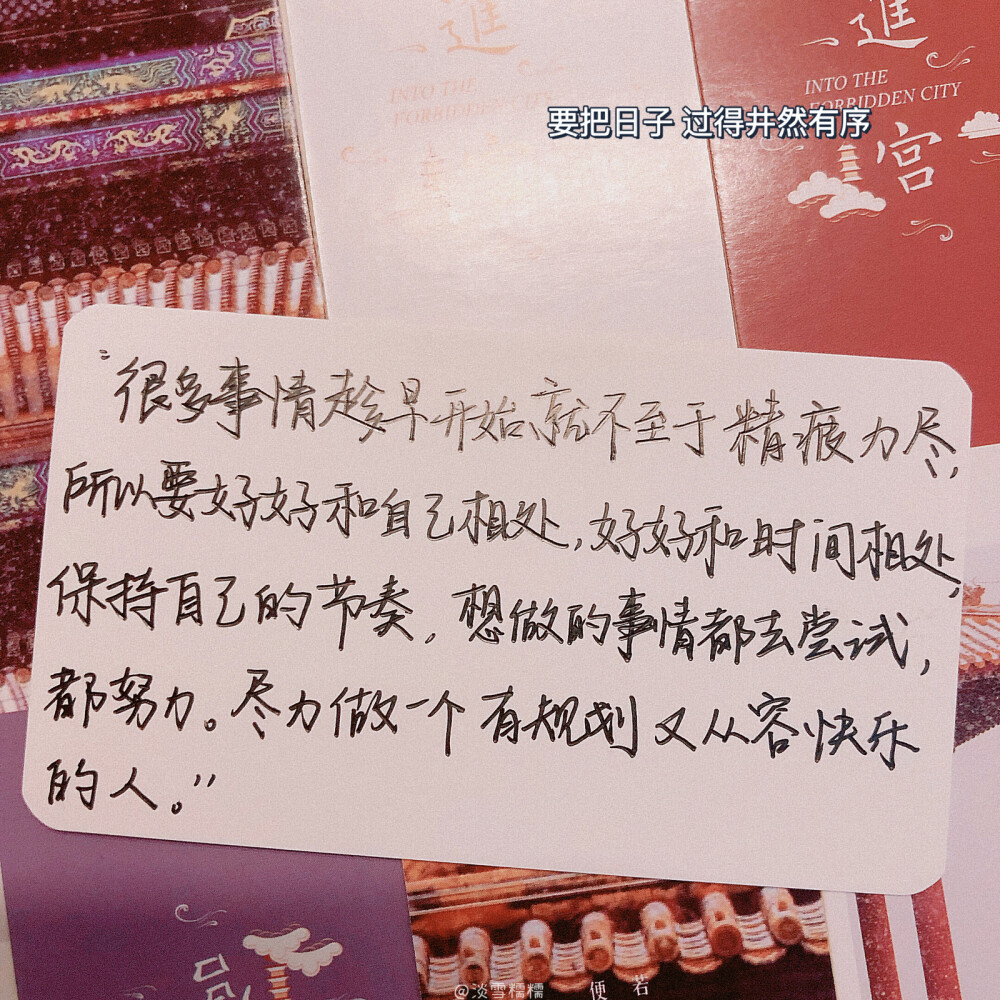 進
INTO THE
FORBIDDEN CITY
進
INTO THE
FORBIDDEN CITY
宫
要把日子 过得井然有序
“很多事情趁早开始,就不至于精疲力尽,
所以要好好和自己相处,好好和时间相处,
保持自己的节奏,想做的事情都去尝试,
都努力。尽力做一个有规划又从容快乐
的人。”
@淡雪糯糯
便若